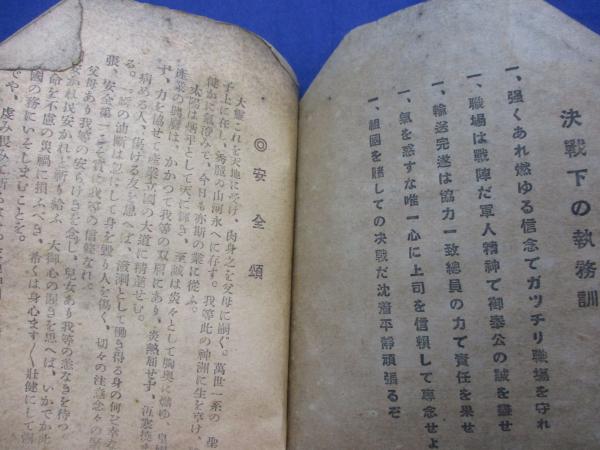 決戰下の執務訓
一、强くあれ燃ゆる信念でガツチリ職場を守れ
一、職場は戰陣だ軍人精神で御奉公の誠を盡せ
一、輸送完遂は協力一致總員の力で責任を果せ
一、氣を惑すな唯一心に上司を信賴して專念せよ
一、祖國を賭しての決戰だ沈着平靜頑張るぞ
◎安全頌
大靈これを天地に受け、肉身之を父母に嗣ぐ。萬世一系の 聖
子上に在し、秀麗の山河永へに存す。我等此の神洲に生を享け、
健かに氣澄みて、今日も亦斯の業に從ふ。
太陽は炳乎として天に輝き、至誠は炎々として胸奥に燃ゆ、皇
產業の興隆は、かかつて我等の双肩にあり、炎熱屈せず、
ず、力を協せて產業立國の大道に精進せむ。
病める人、傷ける友を思へば、溌溂として働き得る身の何と幸
る。一瞬の油斷は忽にして、身を毀り人を傷く、切々の注意念々の
張、安全第一こそ實に我等の信條なれ。
父母あり我等の安らけきを念じ、兒女あり我等の恙なきを待つ。
安かれ民安かれと祈り給ふ 大御心の渥きを思へば、いかでか此
命を不慮の災禍に損ふべき、希くは身心ます〳〵壯健にして
國の務にいそしまむことを。